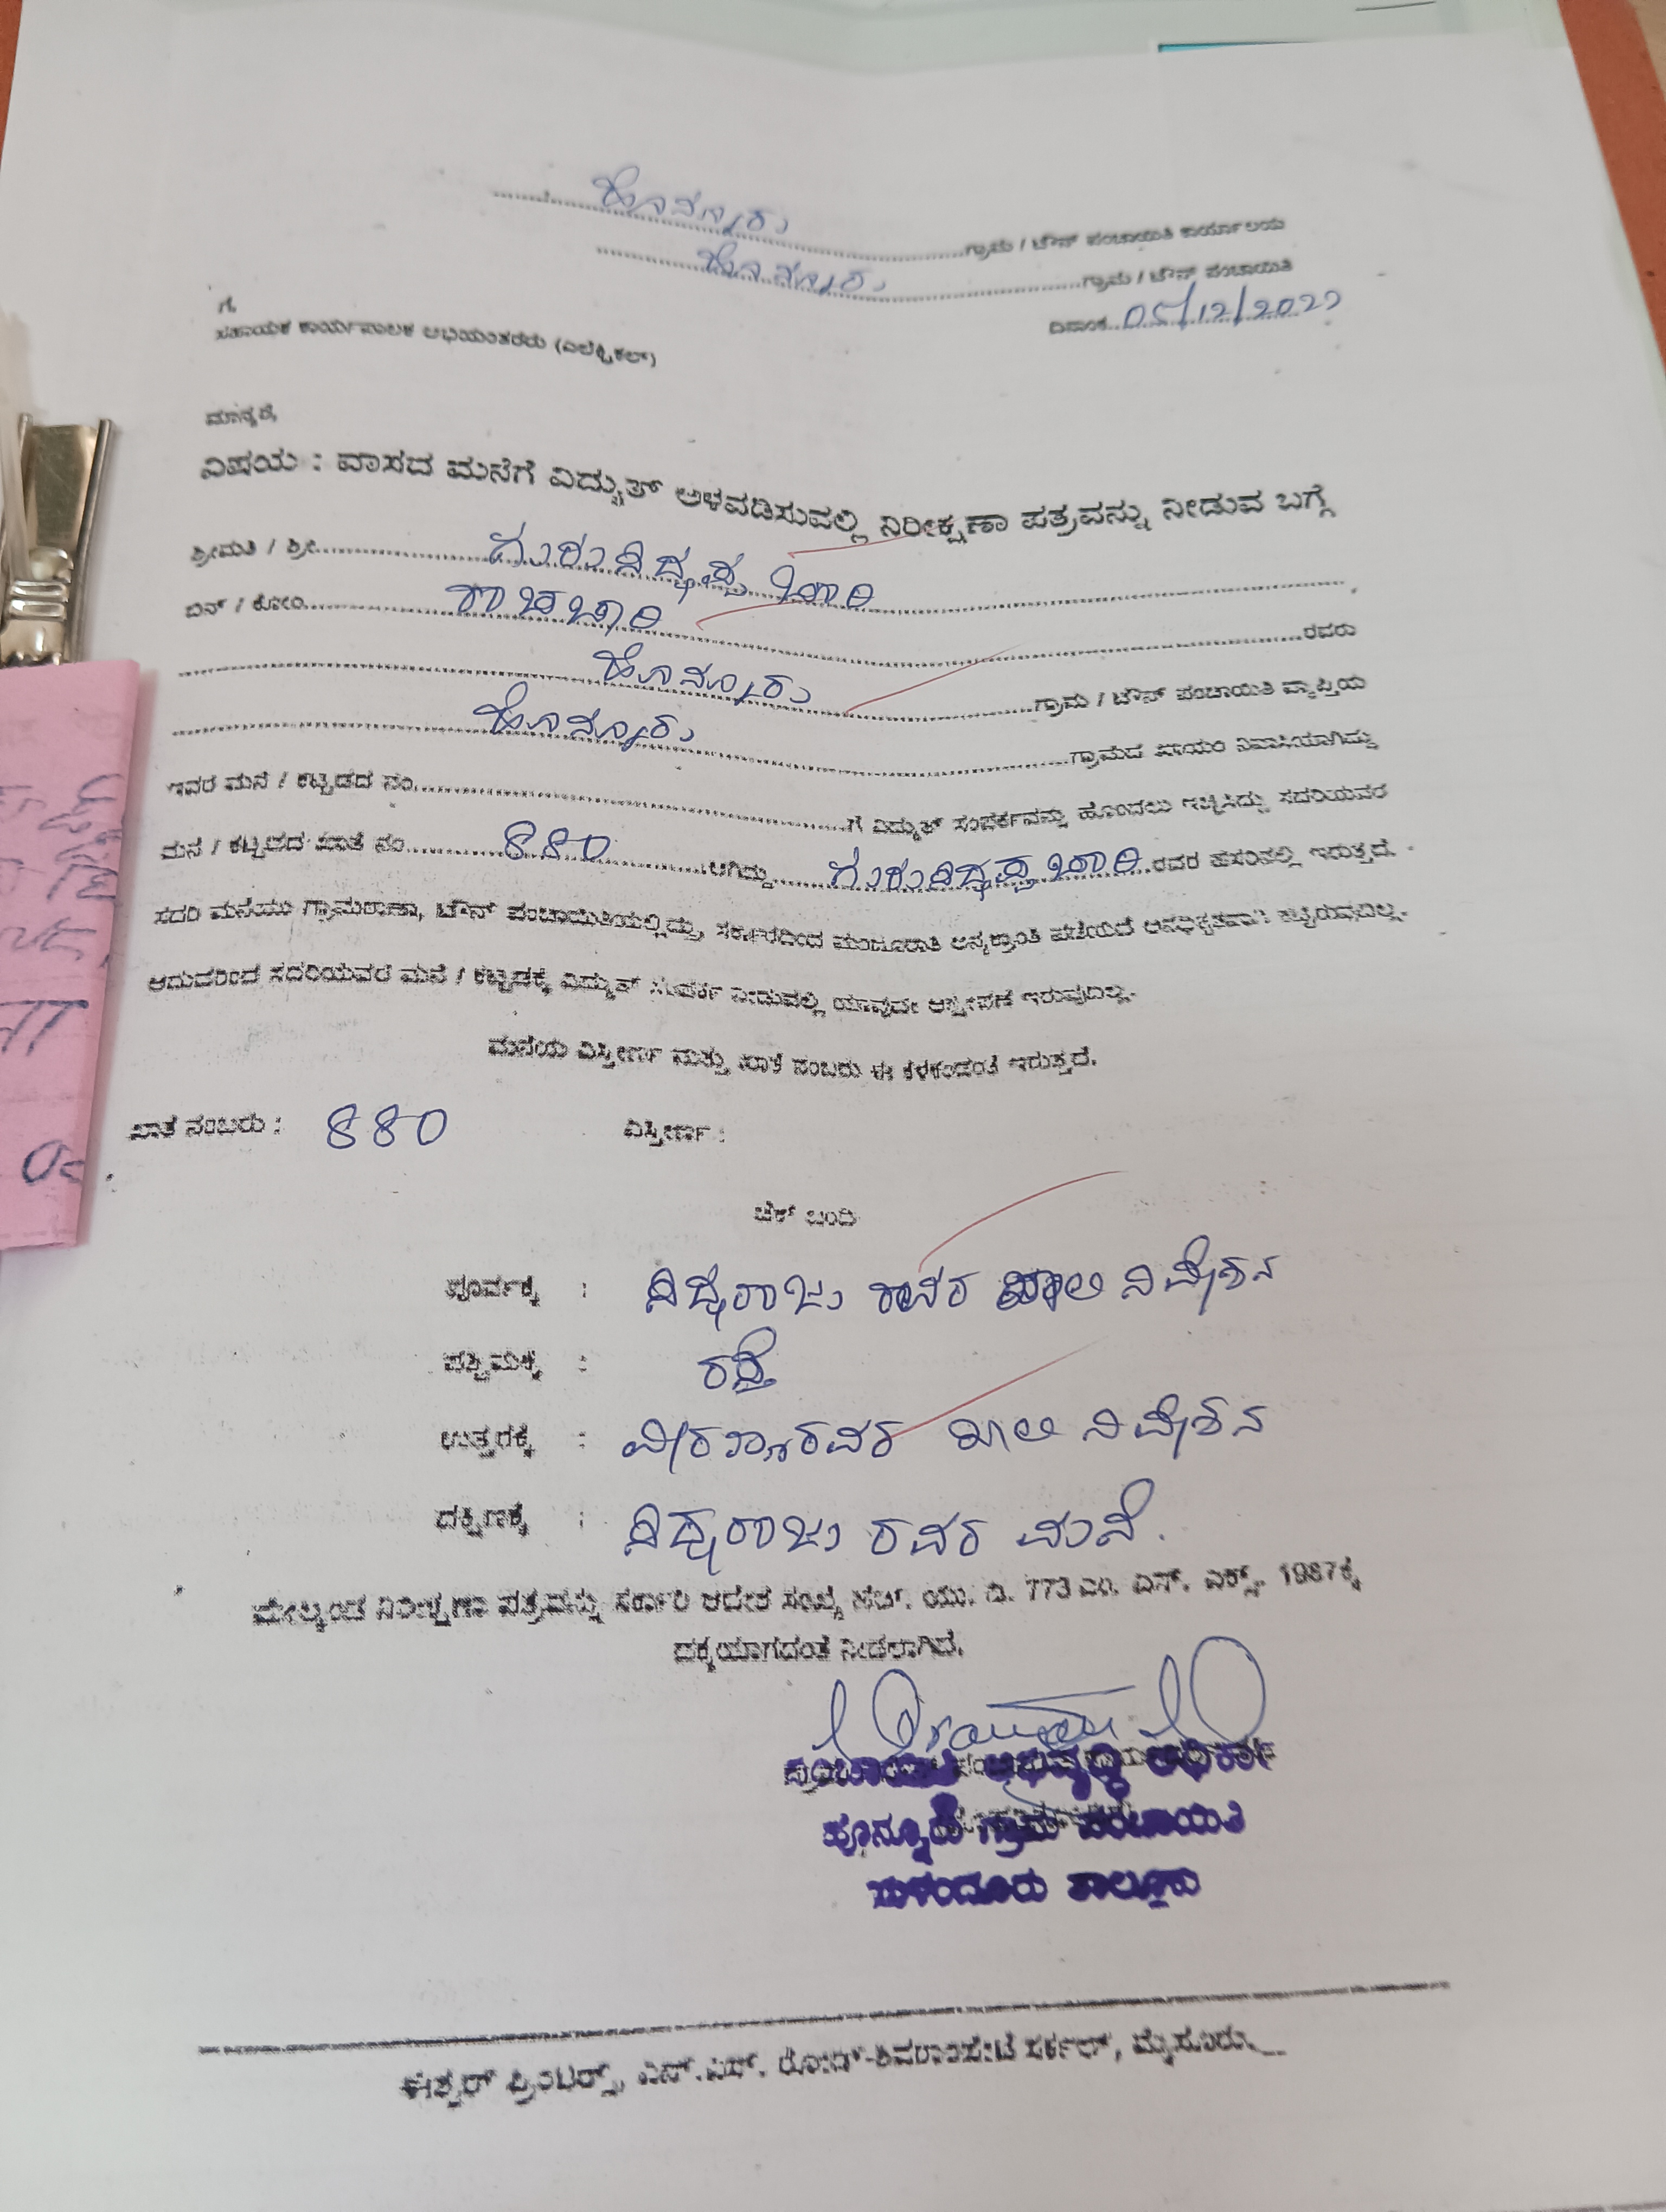 ಹೊನ್ನೂರು ಗ್ರಾಮ / ಟೌನ್ ಪಂಚಾಯಿತಿ ಕಾರ್ಯಾಲಯ
ಹೊನ್ನೂರು ಗ್ರಾಮ / ಟೌನ್ ಪಂಚಾಯಿತಿ
ದಿನಾಂಕ 05/12/2022
ಗೆ,
ಸಹಾಯಕ ಕಾರ್ಯಪಾಲಕ ಅಭಿಯಂತರರು (ಎಲೆಕ್ಟ್ರಿಕಲ್)
ಮಾನ್ಯರೆ,
ವಿಷಯ : ವಾಸದ ಮನೆಗೆ ವಿದ್ಯುತ್ ಅಳವಡಿಸುವಲ್ಲಿ ನಿರೀಕ್ಷಣಾ ಪತ್ರವನ್ನು ನೀಡುವ ಬಗ್ಗೆ
ಶ್ರೀಮತಿ / ಶ್ರೀ ಗುರುಸಿದ್ಧಪ್ಪ
ಬಿನ್ / ಕೋಂ ರವರು
ಹೊನ್ನೂರು ಗ್ರಾಮ / ಟೌನ್ ಪಂಚಾಯಿತಿ ವ್ಯಾಪ್ತಿಯ
ಹೊನ್ನೂರು ಗ್ರಾಮದ ಖಾಯಂ ನಿವಾಸಿಯಾಗಿದ್ದು
ಇವರ ಮನೆ / ಕಟ್ಟಡದ ನಂ. ಗೆ ವಿದ್ಯುತ್ ಸಂಪರ್ಕವನ್ನು ಹೊಂದಲು ಇಚ್ಛಿಸಿದ್ದು ಸದರಿಯವರ
ಮನೆ / ಕಟ್ಟಡದ ಖಾತೆ ನಂ. 880 ಆಗಿದ್ದು ಗುರುಸಿದ್ಧಪ್ಪ ರವರ ಹೆಸರಿನಲ್ಲಿ ಇರುತ್ತದೆ.
ಸದರಿ ಮನೆಯು ಗ್ರಾಮಠಾಣಾ, ಟೌನ್ ಪಂಚಾಯಿತಿಯಲ್ಲಿದ್ದು, ಸರ್ಕಾರದಿಂದ ಮಂಜೂರಾತಿ ಅನ್ಯಕ್ರಾಂತಿ ಪಡೆಯದೆ ಅನಧಿಕೃತವಾಗಿ ಕಟ್ಟಿರುವುದಿಲ್ಲ.
ಆದುದರಿಂದ ಸದರಿಯವರ ಮನೆ / ಕಟ್ಟಡಕ್ಕೆ ವಿದ್ಯುತ್ ಸಂಪರ್ಕ ನೀಡುವಲ್ಲಿ ಯಾವುದೇ ಆಕ್ಷೇಪಣೆ ಇರುವುದಿಲ್ಲ.
ಮನೆಯ ವಿಸ್ತೀರ್ಣ ಮತ್ತು ಖಾತೆ ನಂಬರು ಈ ಕೆಳಕಂಡಂತೆ ಇರುತ್ತದೆ.
ಖಾತೆ ನಂಬರು : 880 ವಿಸ್ತೀರ್ಣ :
ಚೆಕ್ ಬಂದಿ
ಪೂರ್ವಕ್ಕೆ : ಸಿದ್ದರಾಜು ರವರ ಖಾಲಿ ನಿವೇಶನ
ಪಶ್ಚಿಮಕ್ಕೆ : ರಸ್ತೆ
ಉತ್ತರಕ್ಕೆ : ರವರ ಖಾಲಿ ನಿವೇಶನ
ದಕ್ಷಿಣಕ್ಕೆ : ಸಿದ್ದರಾಜು ರವರ ಮನೆ.
ಮೇಲ್ಕಂಡ ನಿರೀಕ್ಷಣಾ ಪತ್ರವನ್ನು ಸರ್ಕಾರಿ ಆದೇಶ ಸಂಖ್ಯೆ ಹೆಚ್. ಯು. ಡಿ. 773 ಎಂ. ಎನ್. ಎಕ್ಸ್. 1987ಕ್ಕೆ
ಧಕ್ಕೆಯಾಗದಂತೆ ನೀಡಲಾಗಿದೆ.
ಪಂಚಾಯಿತಿ ಅಭಿವೃದ್ಧಿ ಅಧಿಕಾರಿ
ಹೊನ್ನೂರು ಗ್ರಾಮ ಪಂಚಾಯಿತಿ
ಯಳಂದೂರು ತಾಲ್ಲೂಕು
ಈಶ್ವರ್ ಪ್ರಿಂಟರ್ಸ್, ಎನ್.ಎಸ್. ರೋಡ್-ಶಿವರಾಂಪೇಟೆ ಸರ್ಕಲ್, ಮೈಸೂರು.